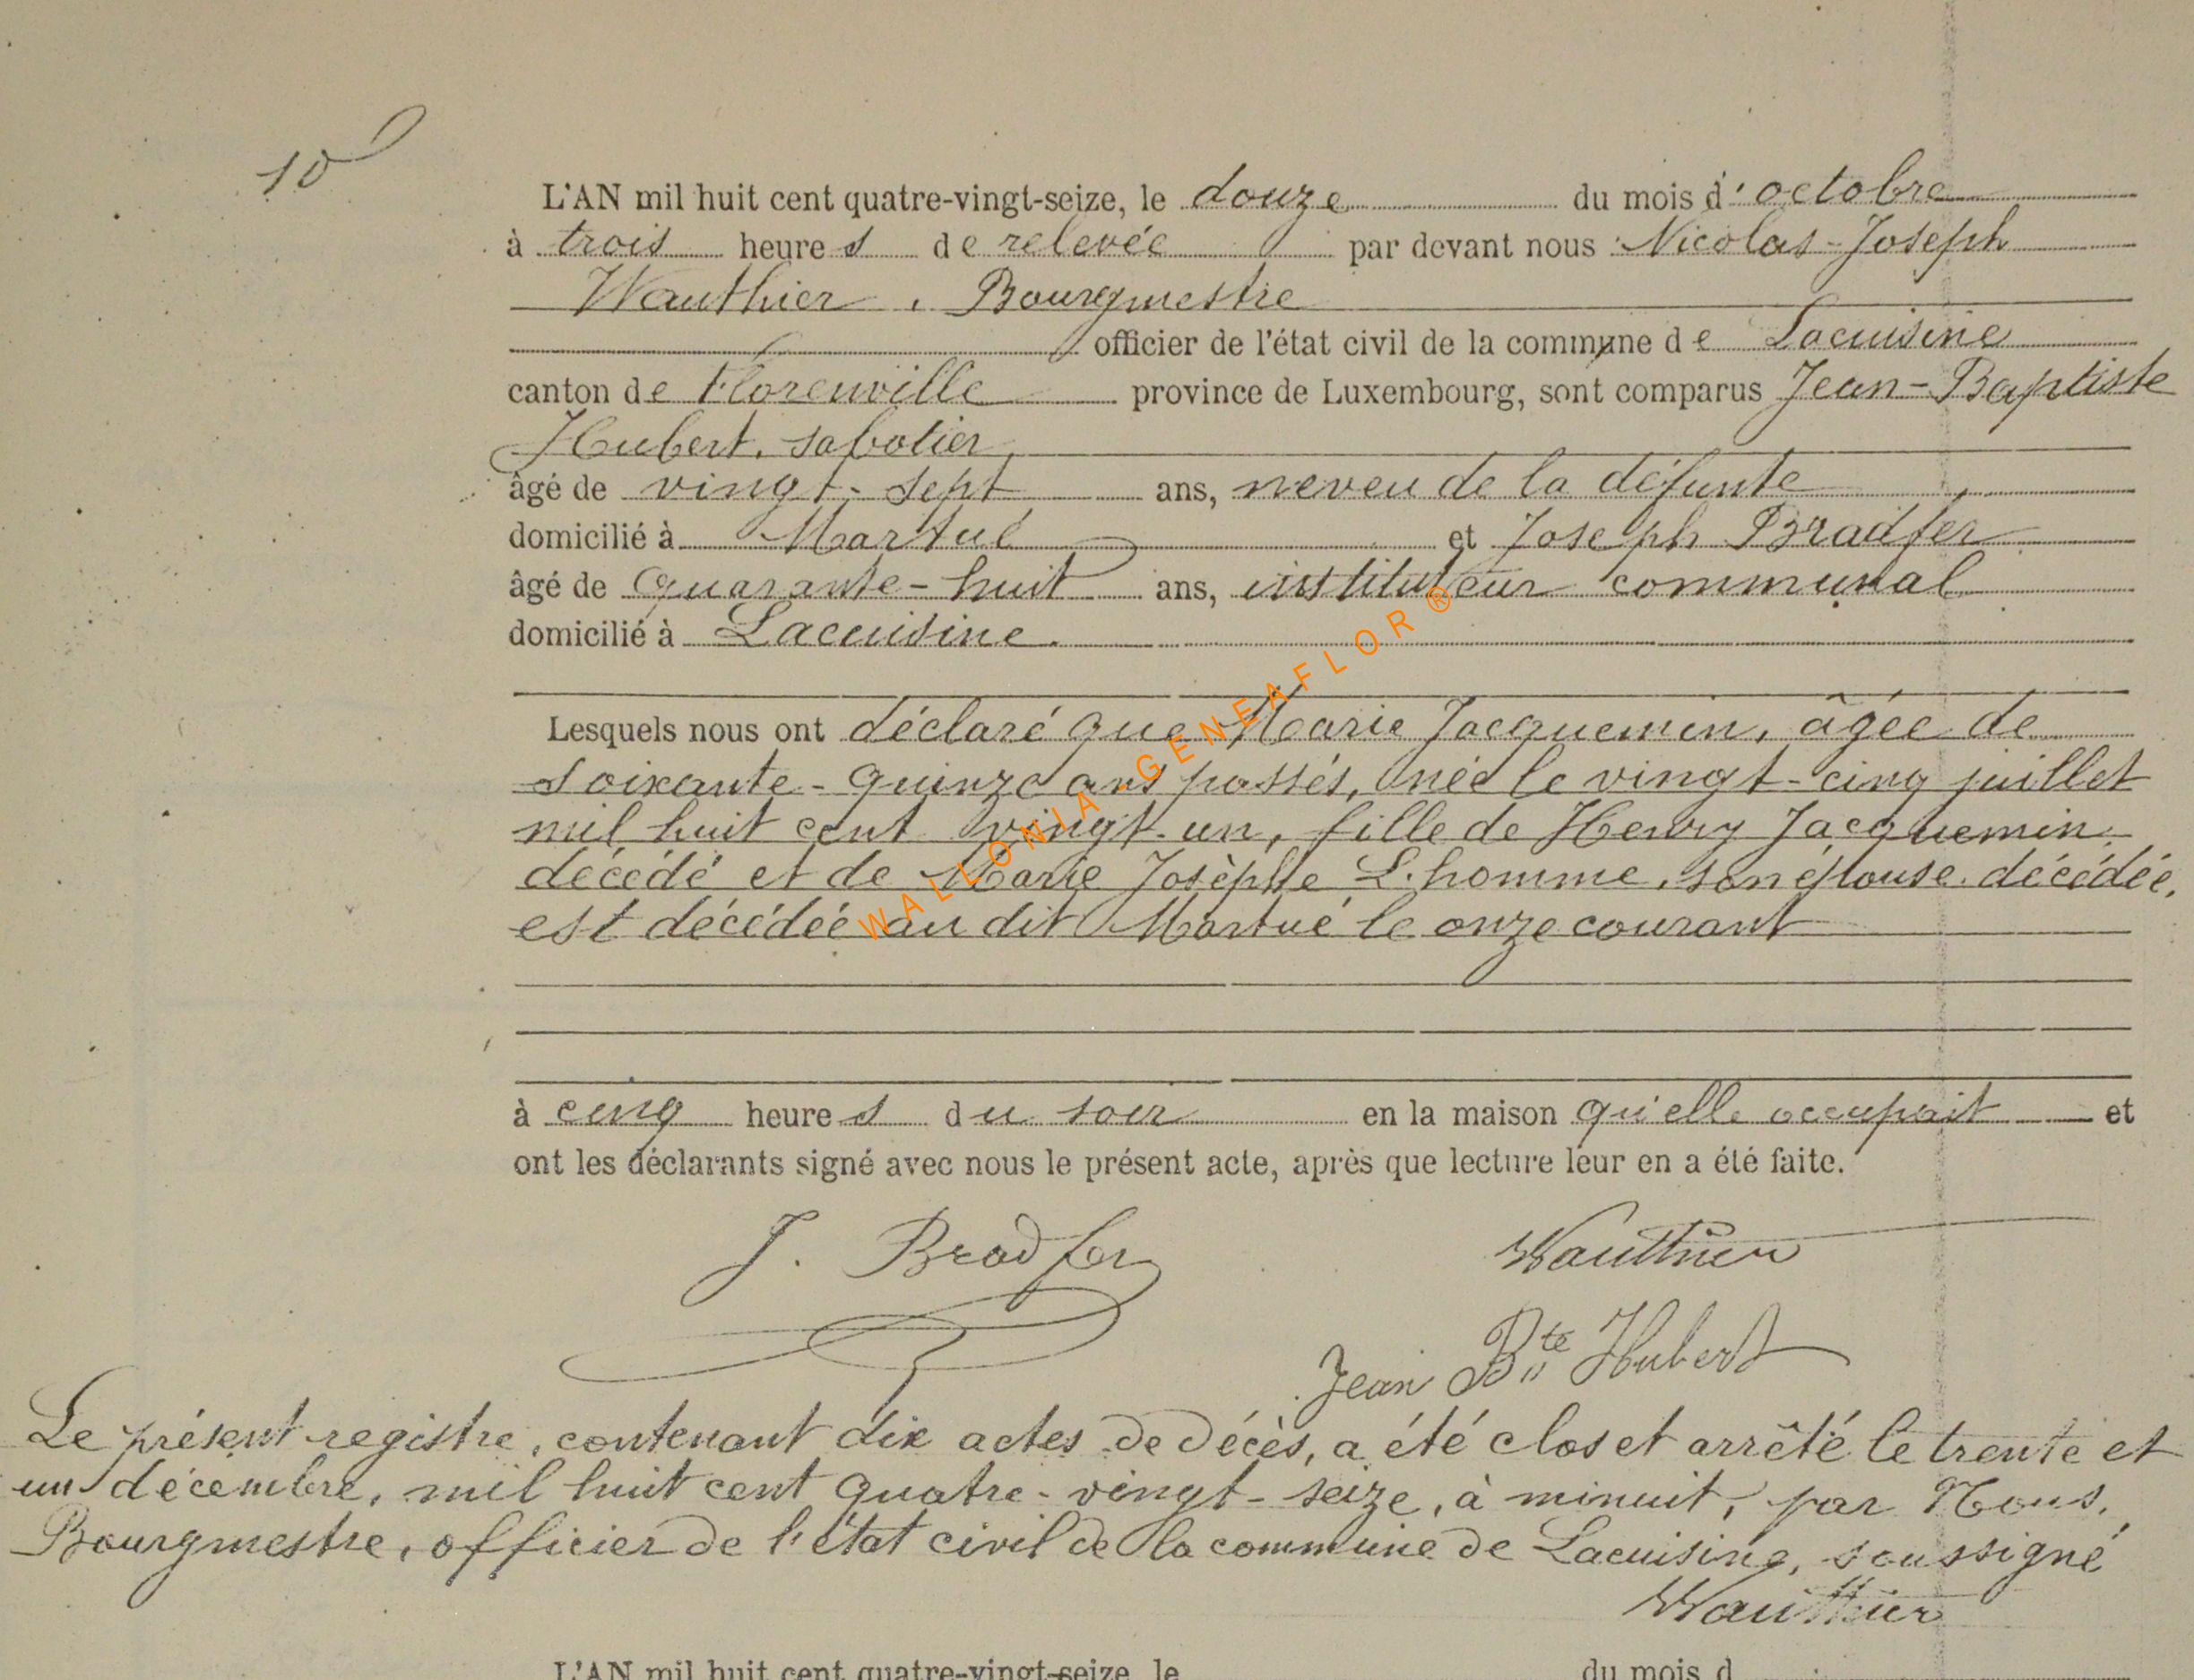 10
L'AN mil huit cent quatre-vingt-seize, le douze du mois d'octobre
à trois heures de relevée par devant nous Nicolas-Joseph
Wauthier, Bourgmestre
officier de l'état civil de la commune de Lacuisine
canton de Florenville province de Luxembourg, sont comparus Jean-Baptiste
Hubert, sabotier,
âgé de vingt-sept ans, neveu de la défunte,
domicilié à Martué et Joseph Bradfer
âgé de quarante-huit ans, instituteur communal
domicilié à Lacuisine.
Lesquels nous ont déclaré que Marie Jacquemin, âgée de
soixante-quinze ans passés, née le vingt-cinq juillet
mil huit cent vingt-un, fille de Henry Jacquemin,
décédé et de Marie Josèphe L'homme, son épouse décédée,
est décédée au dit Martué le onze courant
à cinq heures du soir en la maison qu'elle occupait et
ont les déclarants signé avec nous le présent acte, après que lecture leur en a été faite.
J. Bradfer Wauthier
Jean Bte Hubert
Le présent registre, contenant dix actes de décès, a été clos et arrêté le trente et
un décembre, mil huit cent quatre-vingt-seize, à minuit, par Nous,
Bourgmestre, officier de l'état civil de la commune de Lacuisine, soussigné
Wauthier
L'AN mil huit cent quatre-vingt-seize, le du mois d
WALLONIA - GENEAFLOR ®